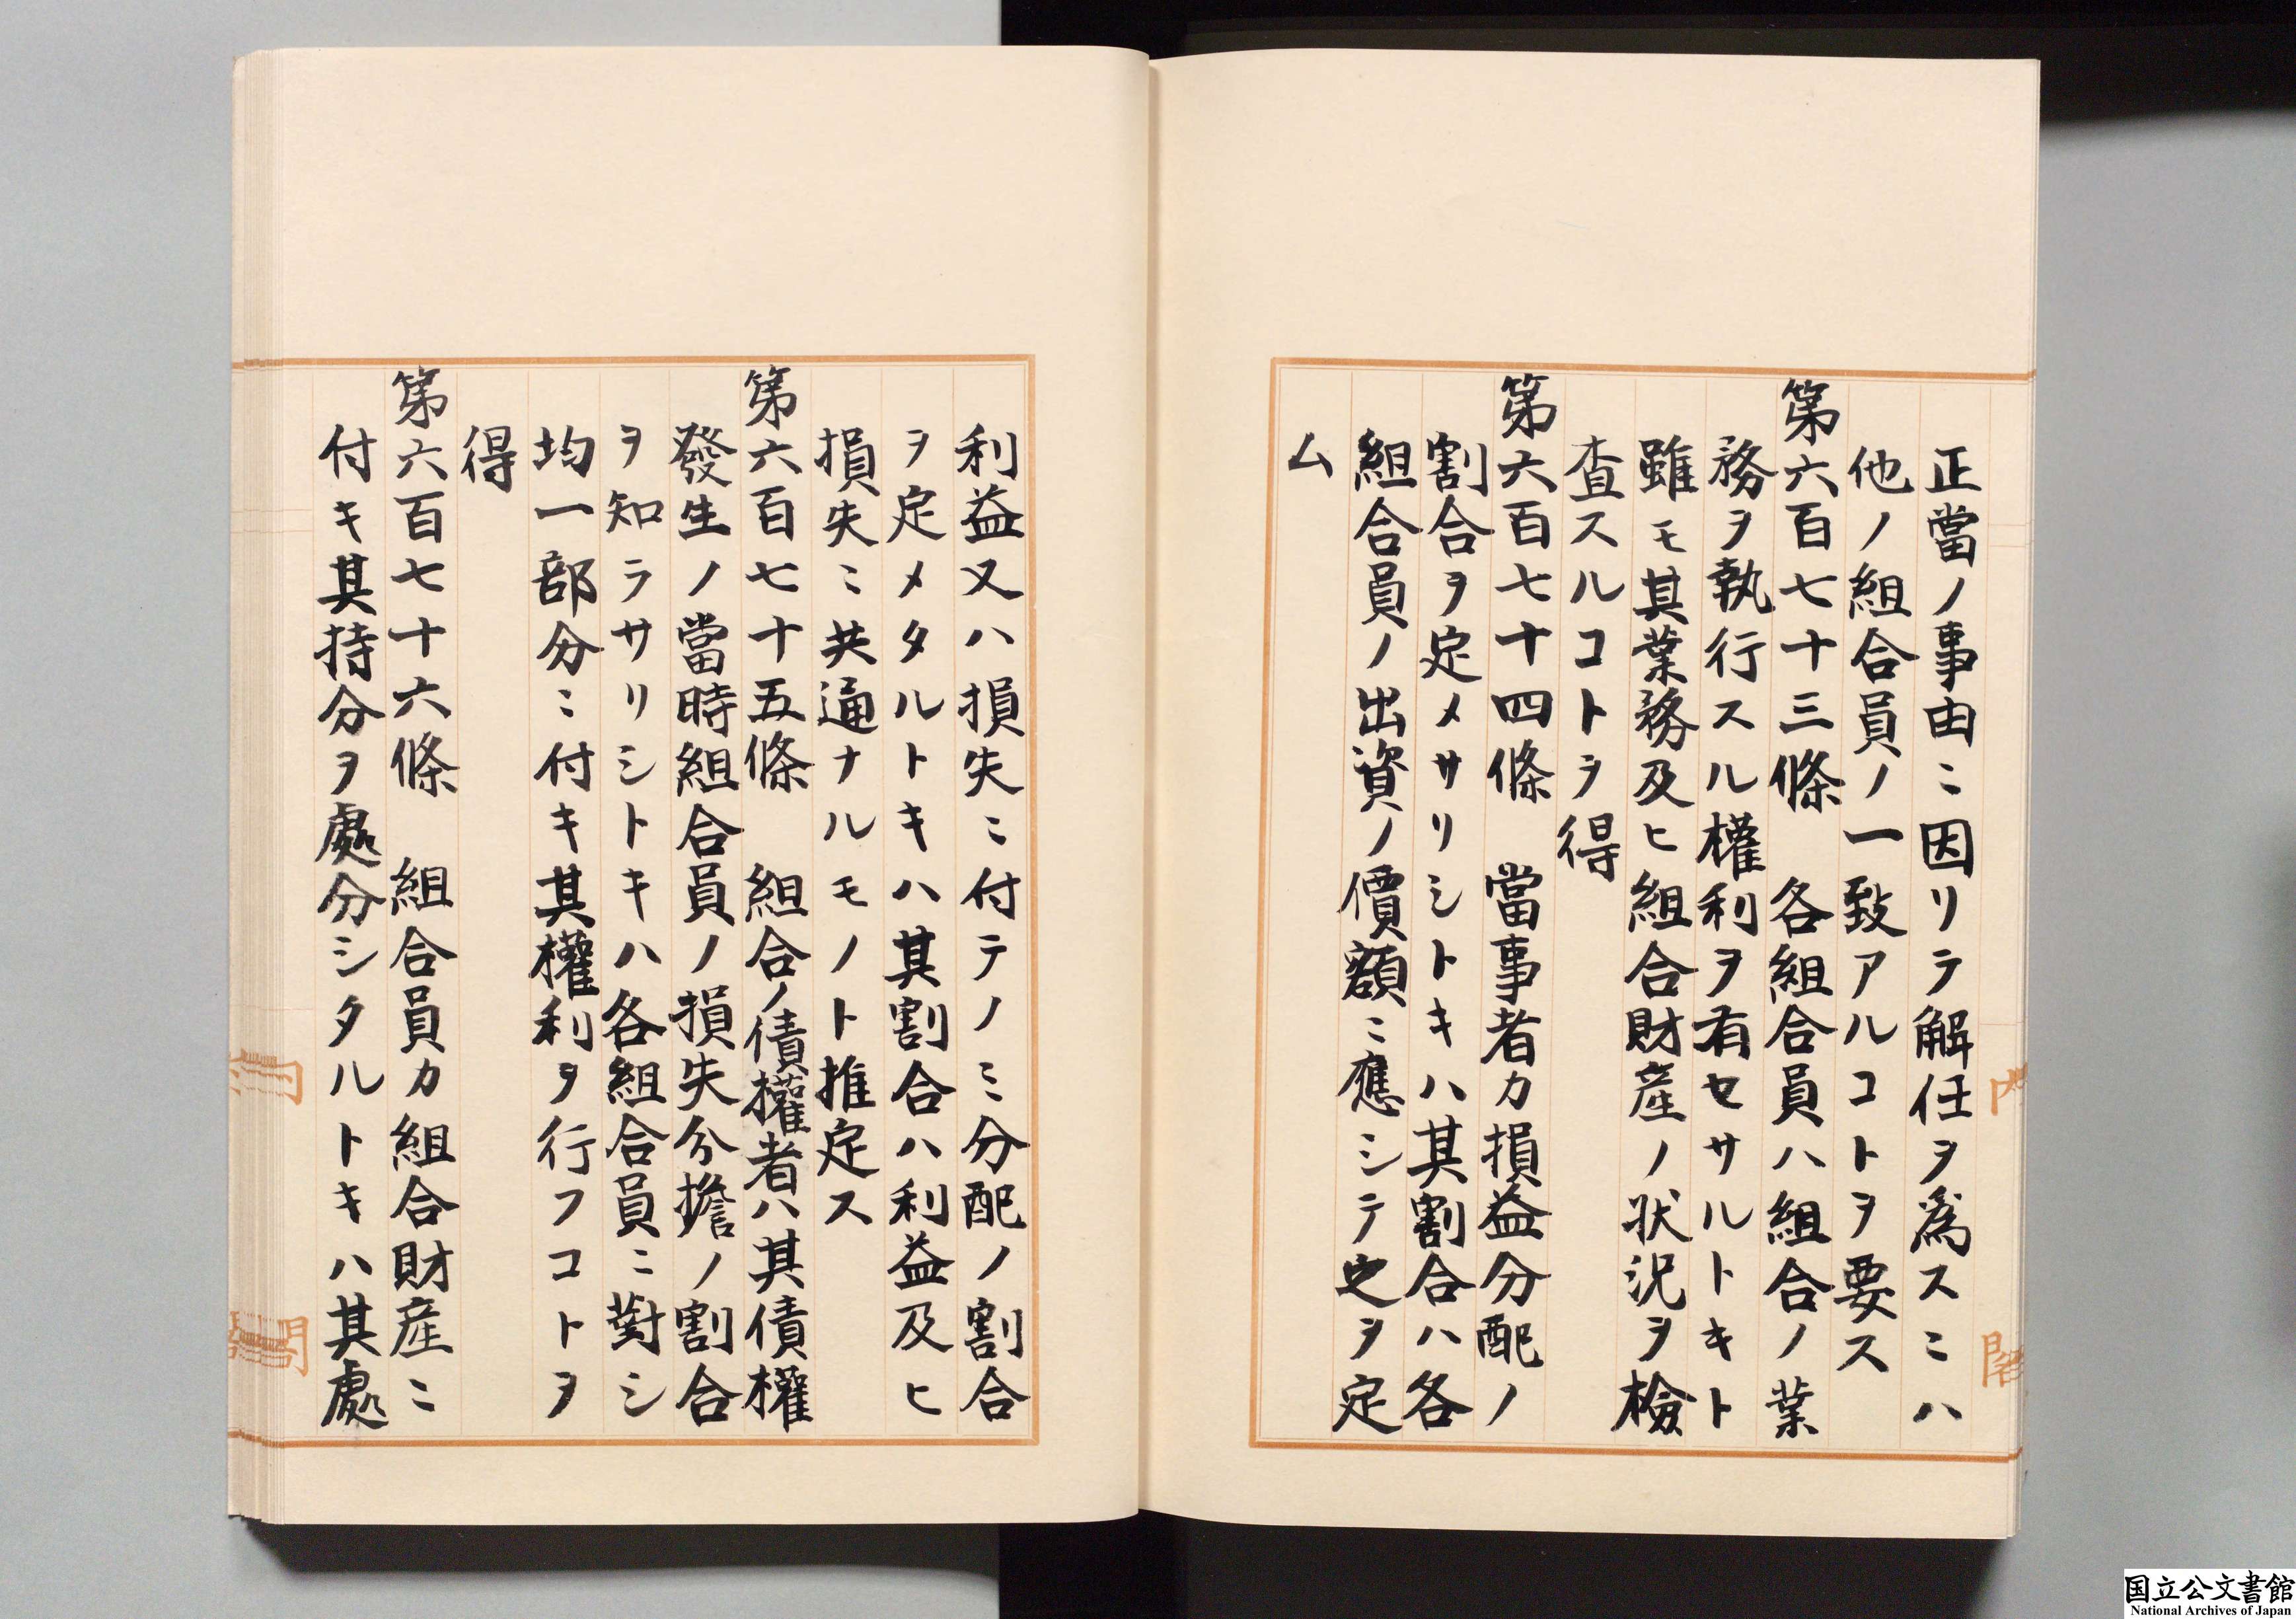 正當ノ事由ニ因リテ解任ヲ爲スニハ
他ノ組合員ノ一致アルコトヲ要ス
第六百七十三條　各組合員ハ組合ノ業
務ヲ執行スル權利ヲ有セサルトキト
雖モ其業務及ヒ組合財産ノ状況ヲ檢
査スルコトヲ得
第六百七十四條　當事者カ損益分配ノ
割合ヲ定メサリシトキハ其割合ハ各
組合員ノ出資ノ價額ニ應シテ之ヲ定
ム
利益又ハ損失ニ付テノミ分配ノ割合
ヲ定メタルトキハ其割合ハ利益及ヒ
損失ニ共通ナルモノト推定ス
第六百七十五條　組合ノ債權者ハ其債權
發生ノ當時組合員ノ損失分擔ノ割合
ヲ知ラサリシトキハ各組合員ニ對シ
均一部分ニ付キ其權利ヲ行フコトヲ
得
第六百七十六條　組合員カ組合財産ニ
付キ其持分ヲ處分シタルトキハ其處
内閣
国立公文書館
National Archives of Japan